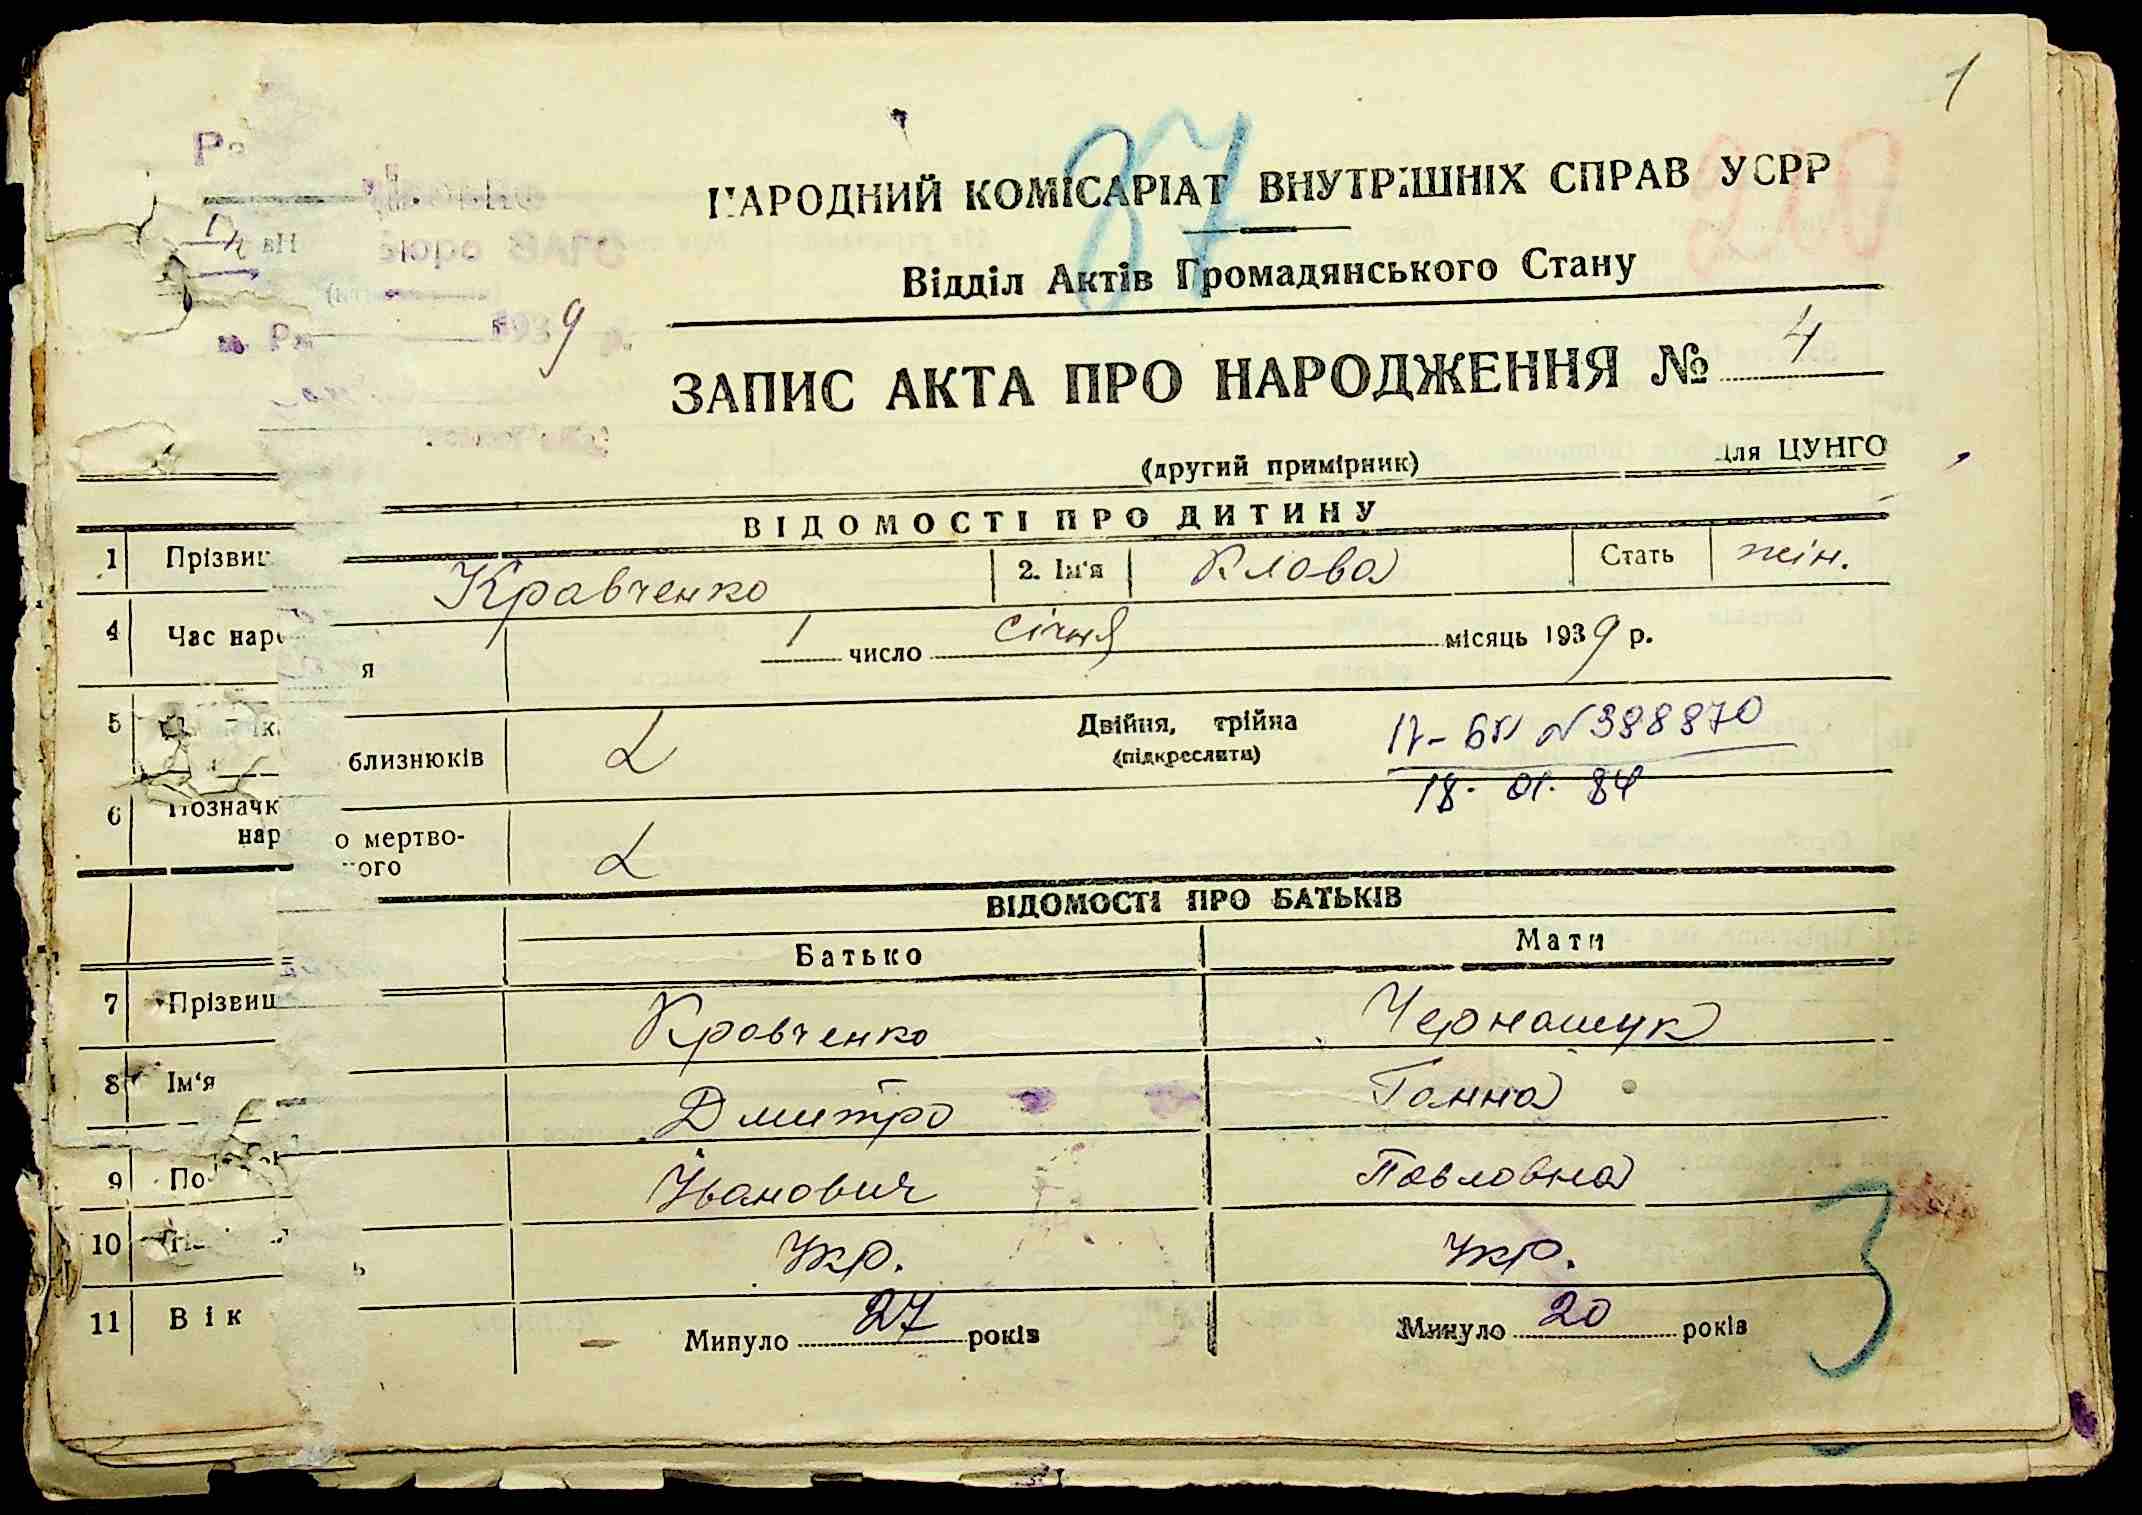 1
37
НАРОДНИЙ КОМІСАРІАТ ВНУТРІШНІХ СПРАВ УСРР
Відділ Актів Громадянського Стану
Бюро ЗАГС
1939 р.
ЗАПИС АКТА ПРО НАРОДЖЕННЯ № 4
(другий примірник) Для ЦУНГО
ВІДОМОСТІ ПРО ДИТИНУ
1 Прізвищ Кравченко 2. Ім'я Клава Стать жін.
4 Час наро я 1 число січня місяць 1939 р.
5 близнюків Двійня, трійна
(підкреслити)
№ 388870
18-01-84
6 Позначк
нар о мертво-
ого
ВІДОМОСТІ ПРО БАТЬКІВ
Батько Мати
7 Прізвищ Кравченко Чернашук
8 Ім'я Дмитро Ганна
9 По Іванович Павловна
10 Укр. Укр.
11 Вік Минуло 27 років Минуло 20 років
3